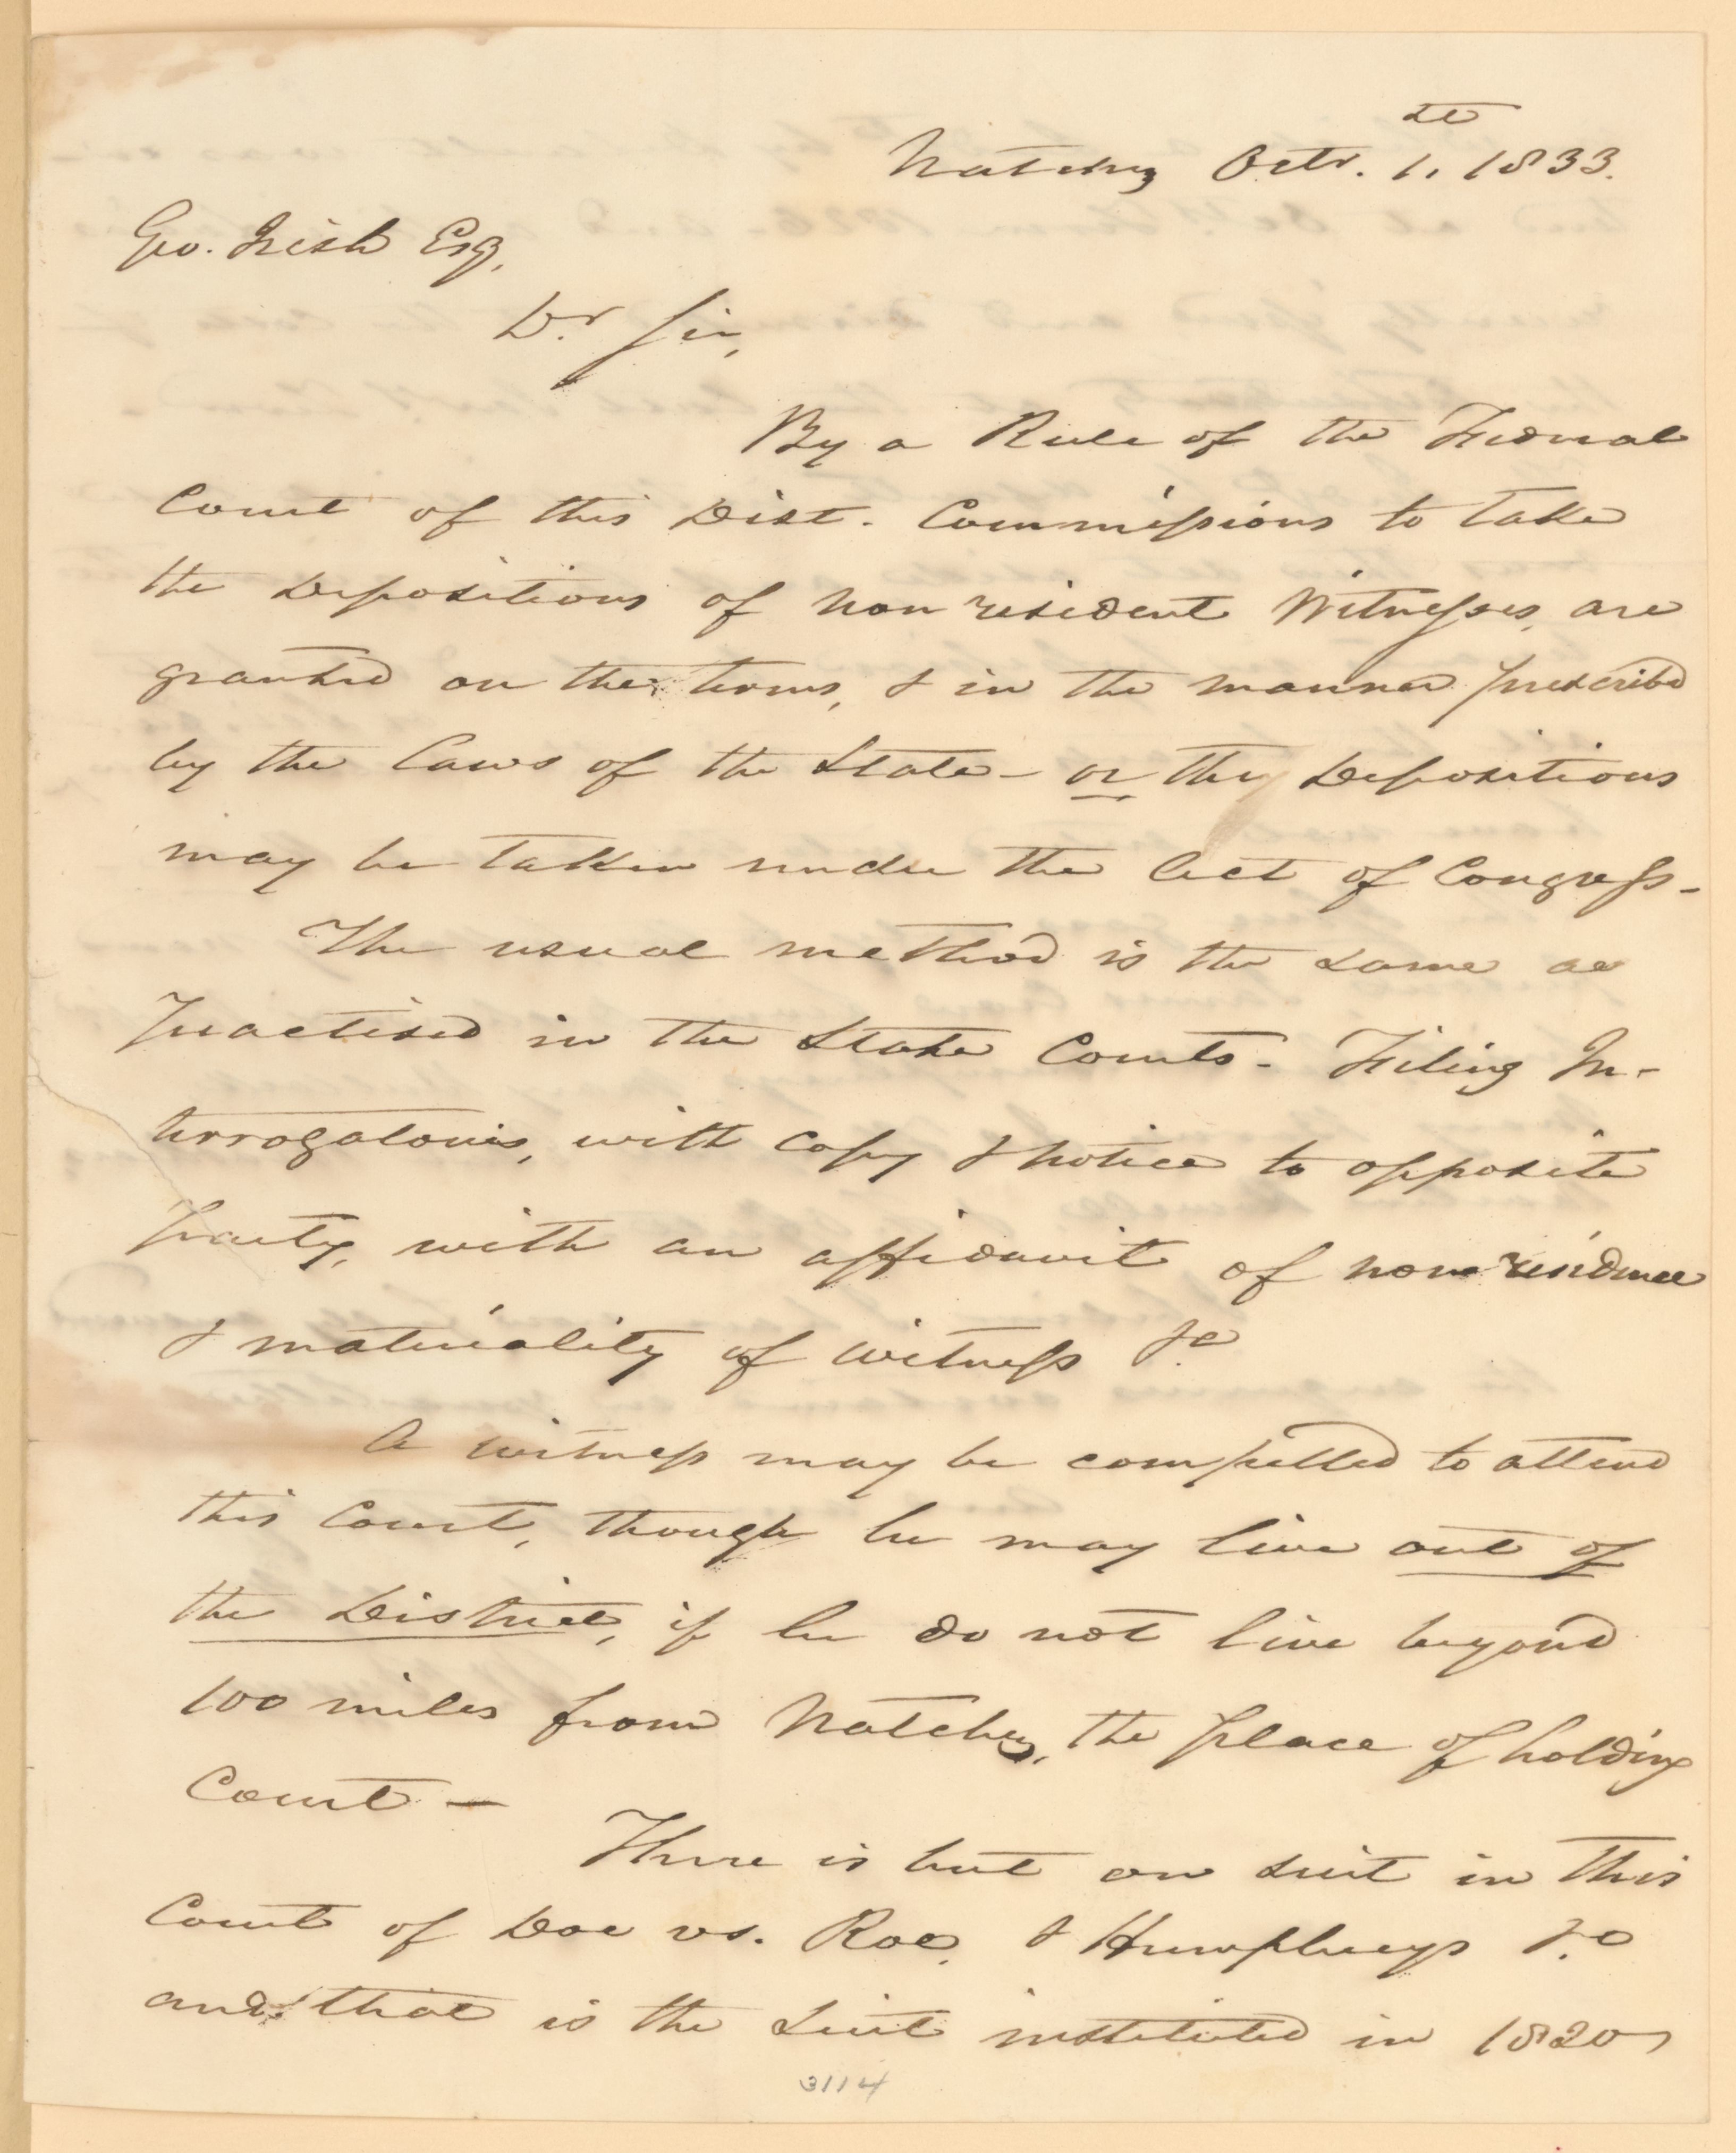 Natchez Octr. 1, 1833.
Geo. Irish Esq,
Dr. Sir,
By a Rule of the Federal
Court of this Dist. Commissions to take
the Depositions of non resident Witnesses, are
granted on the terms, & in the manner prescribed
by the Laws of the State - or the Depositions
may be taken under the Act of Congress -
The usual method is the same as
practised in the State Courts - Filing In-
terrogatories, with copy & notice to opposite
party, with an affidavit of non residence
& materiality of witness &c
A witness may be compelled to attend
this Court, though he may live out of
the District, if he do not live beyond
100 miles from Natchez, the place of holding
Court —
There is but one suit in this
Court of Doe vs. Roe, & Humphreys &c
and that is the suit instituted in 1820,
3114